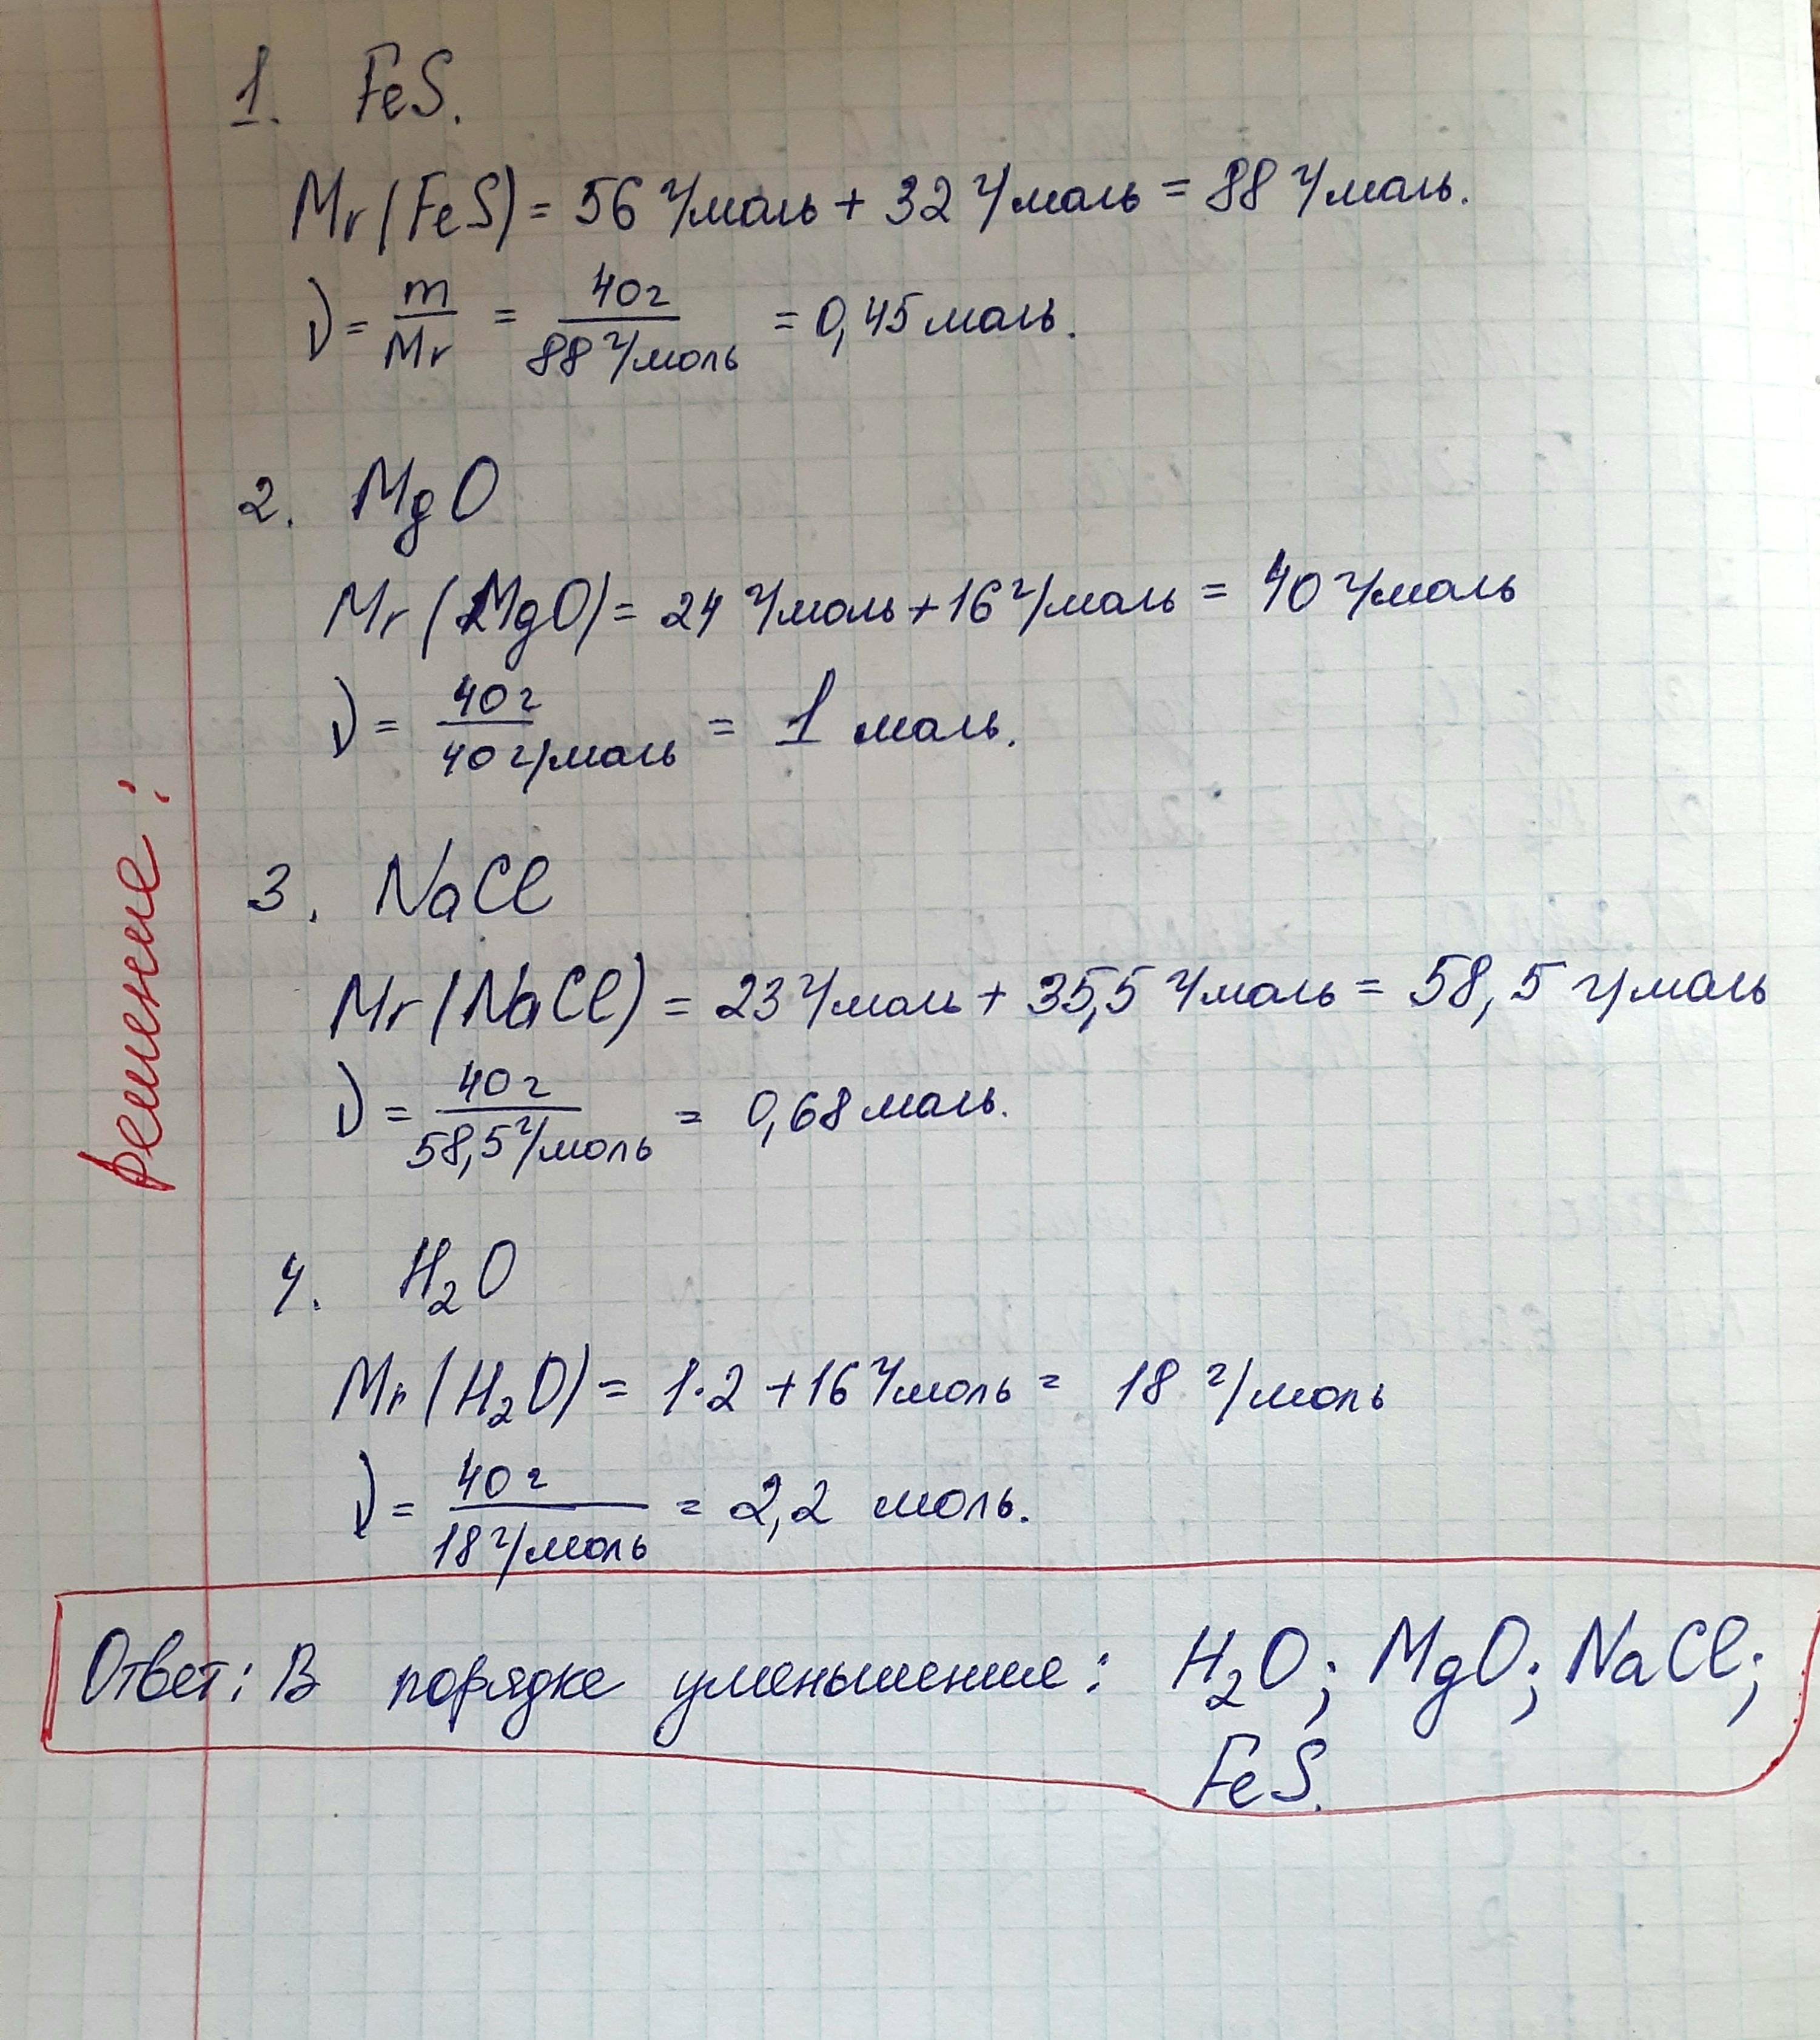 Решение:
1. FeS.
Mr(FeS) = 56 г/моль + 32 г/моль = 88 г/моль.
ν = m/Mr = 40г/88 г/моль = 0,45 моль.
2. MgO
Mr(MgO) = 24 г/моль + 16 г/моль = 40 г/моль
ν = 40г/40 г/моль = 1 моль.
3. NaCl
Mr(NaCl) = 23 г/моль + 35,5 г/моль = 58,5 г/моль
ν = 40г/58,5 г/моль = 0,68 моль.
4. H₂O
Mr(H₂O) = 1·2 + 16 г/моль = 18 г/моль
ν = 40г/18 г/моль = 2,2 моль.
Ответ: В порядке уменьшение: H₂O; MgO; NaCl;
FeS.